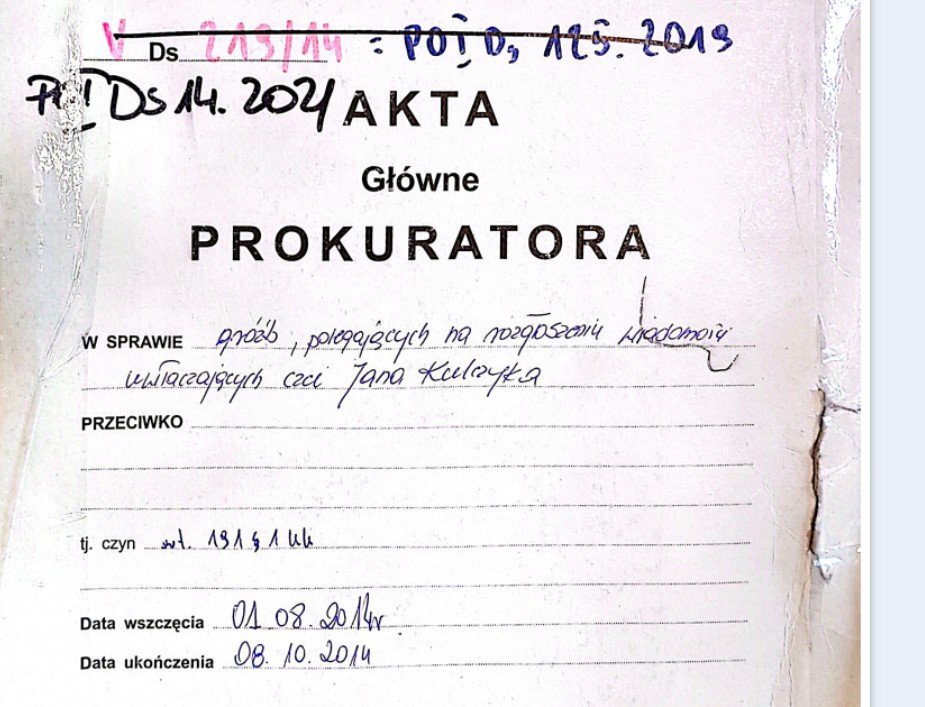 V Ds 213/14 = PO I Ds 125.2019
PO I Ds 14.2021 AKTA
Główne
PROKURATORA
W SPRAWIE gróźb, polegających na rozgłoszeniu wiadomości
uwłaczających czci Jana Kulczyka
PRZECIWKO
tj. czyn art. 191 § 1 kk
Data wszczęcia 01.08.2014r
Data ukończenia 08.10.2014